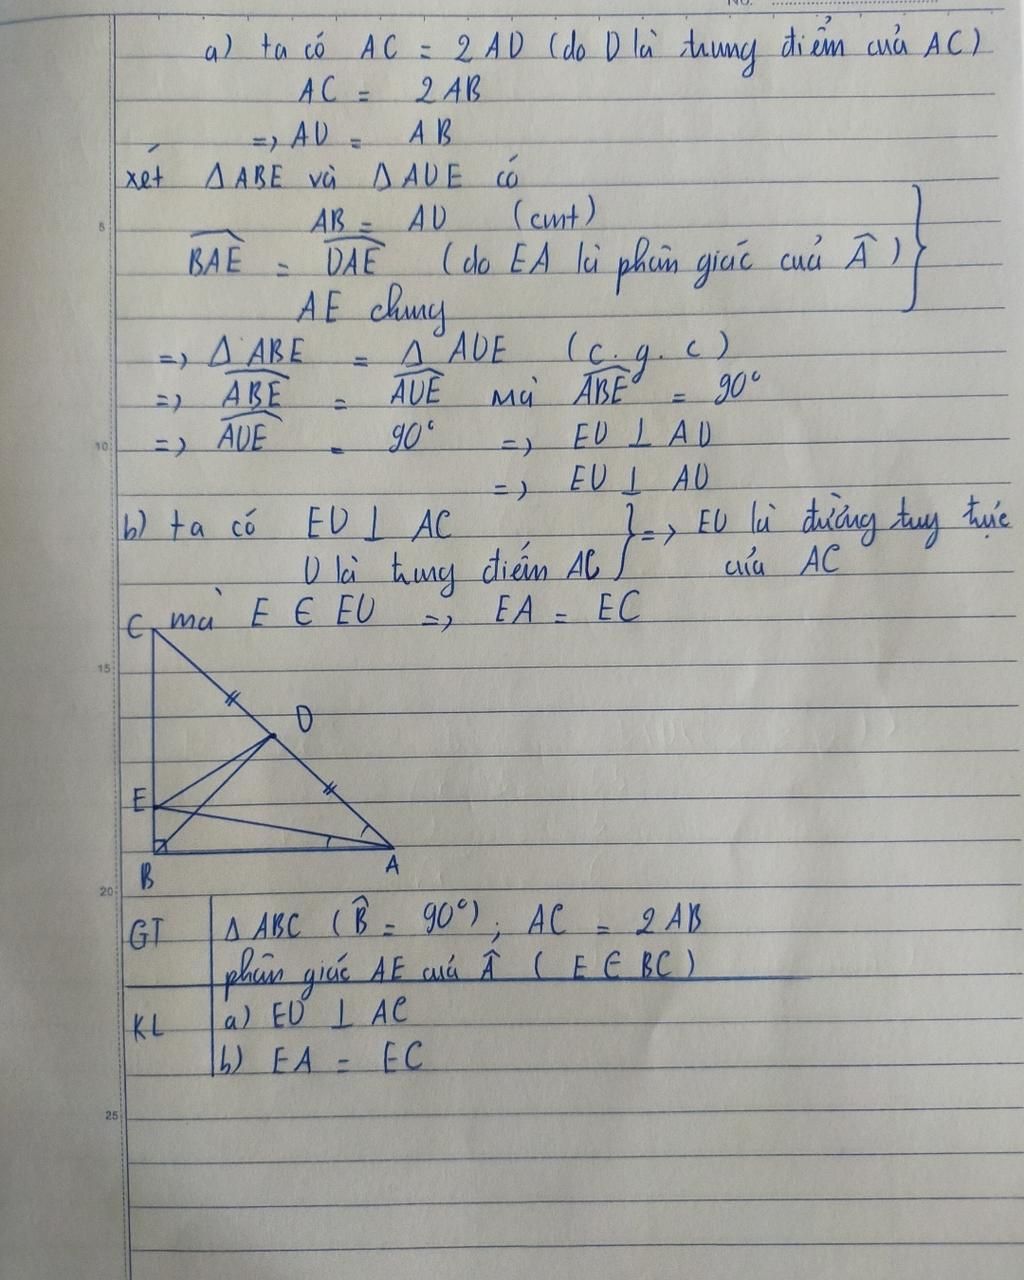 No.
a) ta có AC = 2 AD (do D là trung điểm cuả AC)
AC = 2 AB
=> AD = AB
xét Δ ABE và Δ ADE có
AB = AD (cmt)
BAE = DAE (do EA là phân giác cuả Â)
AE chung
=> Δ ABE = Δ ADE (c.g.c)
=> ABE = ADE mà ABE = 90°
=> ADE = 90° => ED ⊥ AD
=> ED ⊥ AD
b) ta có ED ⊥ AC } => ED là đường tuy trực
D là trung điểm AC cuả AC
mà E ∈ ED => EA = EC
C
D
E
B
A
GT Δ ABC (B̂ = 90°); AC = 2 AB
phân giác AE cuả Â (E ∈ BC)
KL a) ED ⊥ AC
b) EA = EC
5
10
15
20
25